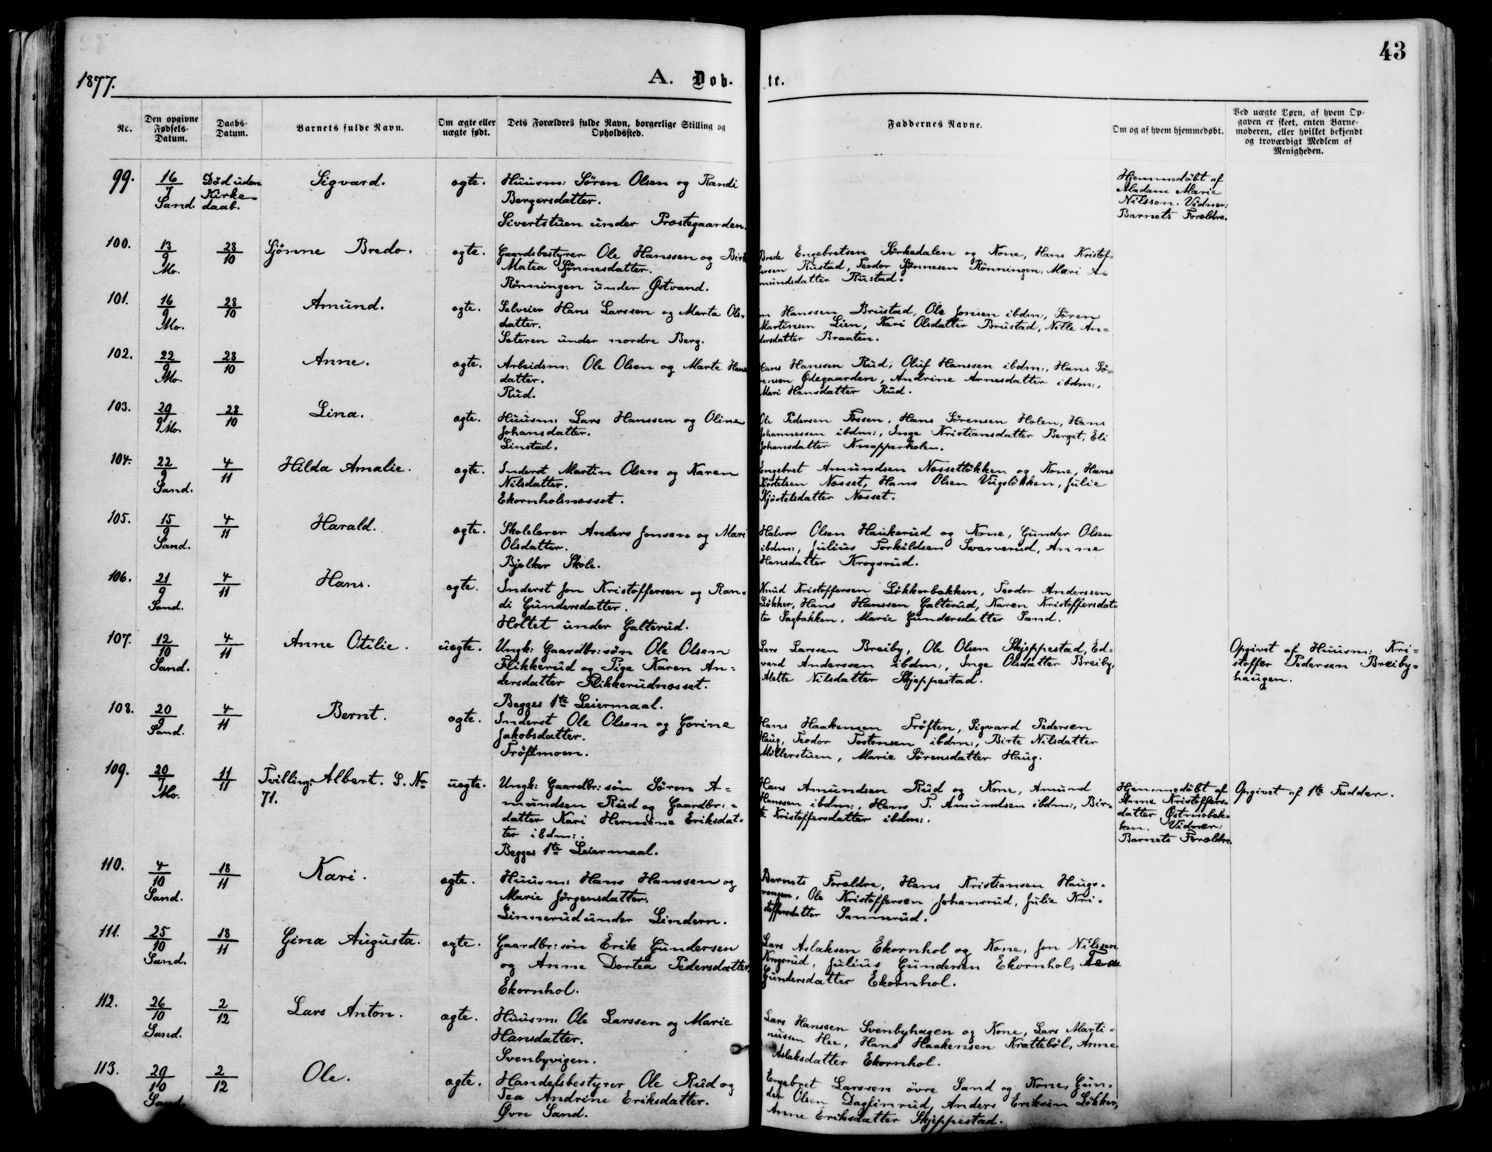 1877.
A. Døb-
te.
43
Nr.
Den opgivne Fødsels-Datum.
Daabs-Datum.
Barnets fulde Navn.
Om ægte eller uægte født.
Dets Forældres fulde Navn, borgerlige Stilling og Opholdssted.
Faddernes Navne.
Om og af hvem hjemmedøbt.
Ved uægte Børn, af hvem Opgaven er skeet, enten Barnemoderen, eller hvilket bekjendt og troværdigt Medlem af Menigheden.
99.
16/7 Sand.
Død uden Kirke-daab.
Sigvard.
ægte.
Huusm: Søren Olsen og Randi
Bergersdatter.
Sivertstuen under Præstegaarden.
Hjemmedøbt af
Madam Marie
Nilsson. Vidner:
Barnets Forældre.
100.
13/9 Mo.
28/10
Sjønne Bredo.
ægte.
Gaardsbestyrer Ole Hanssen og Birte
Matea Sjønnesdatter.
Rønningen under Østvand.
Brede Engebretsen Sørkedalen og Kone, Hans Kristof-
fersen Rustad, Teodor Sjønnesen Rønningen, Mari A-
mundsdatter Rustad.
101.
16/9 Mo.
28/10
Amund.
ægte.
Selveier Hans Larssen og Marta Ols-
datter.
Seteren under nordre Berg.
Hanssen Brustad, Ole Jonsen ibdm:, Søren
Martinsen Lien, Kari Olsdatter Brustad, Nille An-
dersdatter Braaten.
102.
22/9 Mo.
28/10
Anne.
ægte.
Arbeidsm: Ole Olsen og Marte Hans-
datter.
Rud.
Hans Hanssen Rud, Oluf Hanssen ibdm:, Hans Sø-
rensen Ødegaarden, Andrine Arnesdatter ibdm:,
Mari Hansdatter Rud.
103.
29/9 Mo.
28/10
Lina.
ægte.
Huusm: Lars Hanssen og Oline
Johansdatter.
Linstad.
Ole Pedersen Fossen, Hans Sørensen Holen, Hans
Johannessen ibdm:, Inge Kristiansdatter Berget, Eli
Johansdatter Knapperholen.
104.
22/9 Sand.
4/11
Hilda Amalie.
ægte.
Inderst Martin Olsen og Karen
Nilsdatter.
Ekornholnæsset.
Engebret Amundsen Næssetløkken og Kone, Hans
Kjøstelsen Næsset, Hans Olsen Vigsløkken, Julie
Kjøstelsdatter Næsset.
105.
15/9 Sand.
4/11
Harald.
ægte.
Skolelærer Anders Jonsen og Mari
Olsdatter.
Bjølker Skole.
Halvor Olsen Haukerud og Kone, Gunder Olsen
ibdm:, Julius Torkildsen Svarverud, Anne
Hansdatter Krogsrud.
106.
21/9 Sand.
4/11
Hans.
ægte.
Inderst Jon Kristoffersen og Ran-
di Gundersdatter.
Holtet under Galterud.
Knud Kristoffersen Løkkerbakken, Teodor Anderssen
Løkker, Hans Hanssen Galterud, Karen Kristoffersdat-
ter Sagbakken, Marie Gundersdatter Sand.
107.
12/10 Sand.
4/11
Anne Otilie.
uægte.
Ungk: Gaardbr: søn Ole Olsen
Flikkerud og Pige Karen An-
dersdatter Flikkerudnæsset.
Begges 1te Leiermaal.
Lars Larssen Breiby, Ole Olsen Skjeppestad, Ed-
vard Anderssen ibdm:, Inge Olsdatter Breiby,
Alette Nilsdatter Skjeppestad.
Opgivet af Huusm: Kri-
stoffer Pedersen Breiby-
haugen.
108.
20/9 Sand.
4/11
Bernt.
ægte.
Inderst Ole Olsen og Gorine
Jakobsdatter.
Trøftmoen.
Hans Haakensen Trøften, Sigvard Pedersen
Haug, Teodor Torstensen ibdm:, Birte Nilsdatter
Møllerstuen, Marie Sørensdatter Haug.
109.
20/7 Mo.
11/11
Tvilling: Albert. S. No
71.
uægte.
Ungk: Gaardbr: søn Søren A-
mundsen Rud og Gaardbr:-
datter Kari Hermine Eriksdat-
ter ibdm:.
Begges 1te Leiermaal.
Hans Amundsen Rud og Kone, Amund
Hanssen ibdm:, Hans T. Amundsen ibdm:, Bir-
te Kristoffersdatter ibdm:.
Hjemmedøbt af
Anne Kristoffers-
datter Østmobak-
ken. Vidner:
Barnets Forældre.
Opgivet af 1te Fadder.
110.
4/10 Sand.
18/11
Kari.
ægte.
Huusm: Hans Hanssen og
Marie Jørgensdatter.
Linnerud under Lindern.
Barnets Forældre, Hans Kristiansen Haugs-
vangen, Ole Kristoffersen Johansrud, Julie Kri-
stoffersdatter Sannerud.
111.
25/10 Sand.
18/11
Gina Augusta.
ægte.
Gaardbr: søn Erik Gundersen
og Anne Dortea Pedersdatter
Ekornhol.
Lars Aslaksen Ekornhol og Kone, Jon Nilssen
Krogsrud, Julius Gundersen Ekornhol, Tea
Gundersdatter Ekornhol.
112.
26/10 Sand.
2/12
Lars Anton.
ægte.
Huusm: Ole Larssen og Marie
Hansdatter.
Svenbyvigen.
Lars Hanssen Svenbyhagen og Kone, Lars Marti-
nussen Hee, Hans Haakensen Krattebøl, Anne
Aslaksdatter Ekornhol.
113.
29/10 Sand.
2/12
Ole.
ægte.
Handelsbestyrer Ole Rud og
Tea Andrine Eriksdatter.
Øvre Sand.
Engebret Larssen øvre Sand og Kone, Gun-
der Olsen Dagfinrud, Anders Eriksen Løkker,
Anne Eriksdatter Skjeppestad.